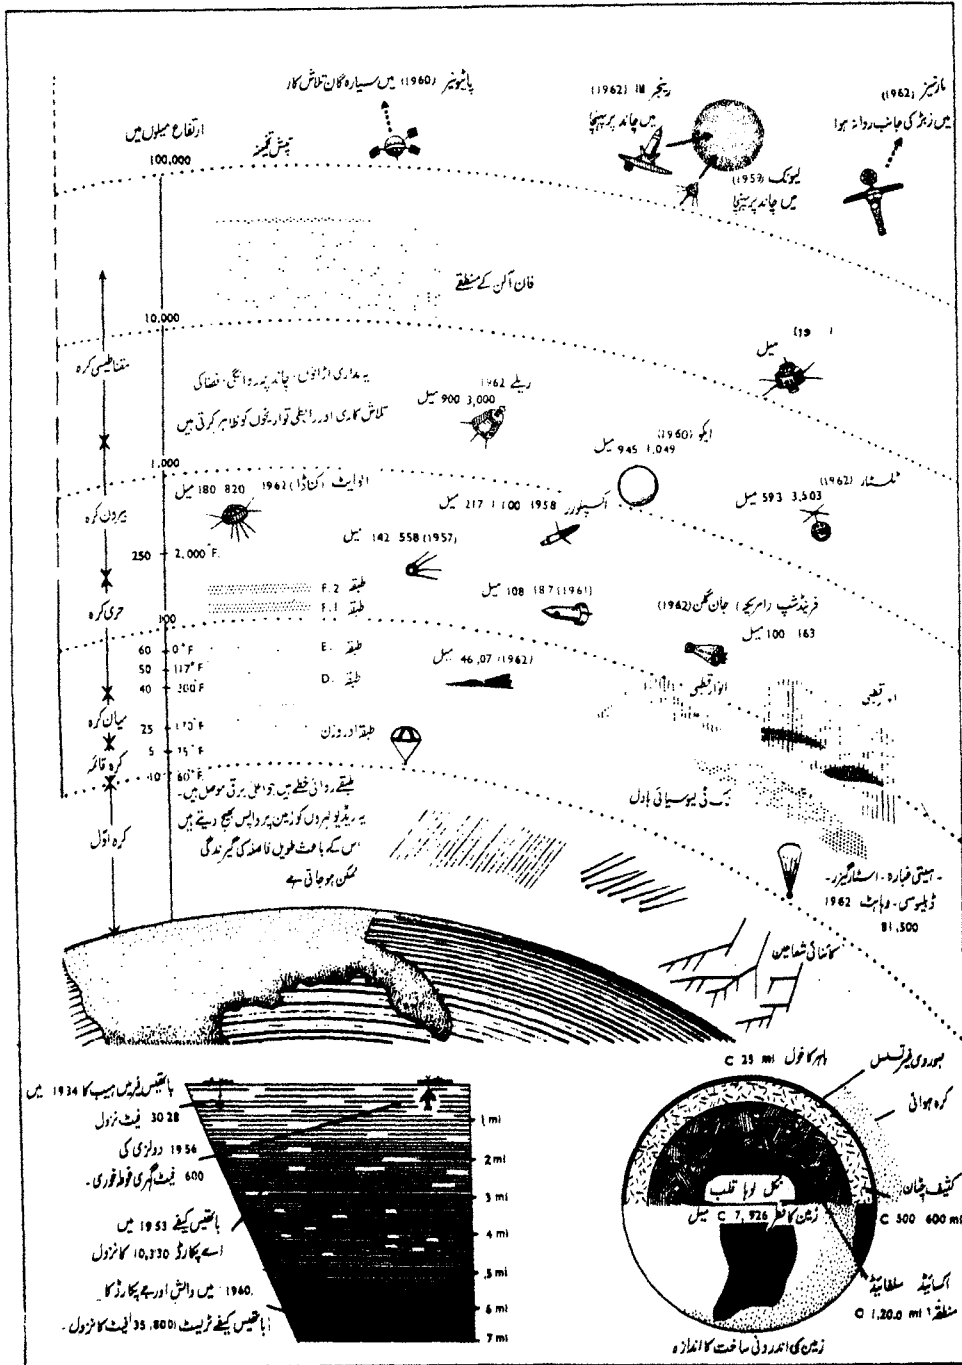 پائیونیر (1960) میں سیارہ گان تلاش کار
رینجر IV (1962)
میں چاند پر پہنچا
مارنیز (1962)
میں زہرہ کی جانب روانہ ہوا
لیونک (1959)
میں چاند پر پہنچا
ارتفاع میلوں میں
تپش تخمینہ
100,000
فان آلن کے منطقے
10,000
(19
میل
مقناطیسی کرہ
یہ مداری اڑانوں، چاند پر روانگی، فضا کی
تلاش کاری اور رابطی تواریخوں کو ظاہر کرتی ہیں
ریلے 1962
900 3,000 میل
ایکو (1960)
945 1,049 میل
1,000
الوایٹ (کناڈا) 1962 820 180 میل
اکسپلورر 1958 1100 217 میل
ٹلسٹار (1962)
593 3,503 میل
بیرون کرہ
142 558 (1957) میل
250 2,000°F.
طبقہ F.2
طبقہ F.1
108 187 (1961) میل
فرینڈشپ (امریکہ) جان گلن (1962)
100 163 میل
حری کرہ
100
60 0°F
طبقہ E.
50 117°F
40 200°F
طبقہ D.
46,07 (1962) میل
انوار قطبی
قطبی
میان کرہ
25 170°F
طبقہ اوزون
5 75°F
کرہ قائمہ
10 60°F.
طبقے روانی خطے ہیں جو اعلیٰ برقی موصل ہیں۔
یہ ریڈیو لہروں کو زمین پر واپس بھیج دیتے ہیں
اس کے باعث طویل فاصلہ کی گیرندگی
ممکن ہو جاتی ہے
کرہ اوّل
بادل
ہیئتی غبارہ۔ اسٹارگیزر۔
ڈبلیو سی۔ وہایٹ 1962
81,500
کائناتی شعاعیں
باتھیس فیر میں بیب کا 1934 میں
3028 فیٹ نزول
1956 دولزی کی
600 فیٹ گہری غوطہ خوری۔
باتھیس کیفے 1953 میں
اے پکارڈ 10,330 کا نزول
1960 میں والش اور جے پکارڈ کا
باتھیس کیفے ٹریسٹ (35,800) فیٹ کا نزول۔
1 mi
2 mi
3 mi
4 mi
5 mi
6 mi
7 mi
باہر کا خول C 25 mi
کرہ ہوائی
نکل لوہا قلب
زمین کا قطر C 7,926 میل
کثیف چٹان
C 500 600 mi
اکسائیڈ سلفائیڈ
منطقہ
C 1,200 mi
زمین کی اندرونی ساخت کا اندازہ